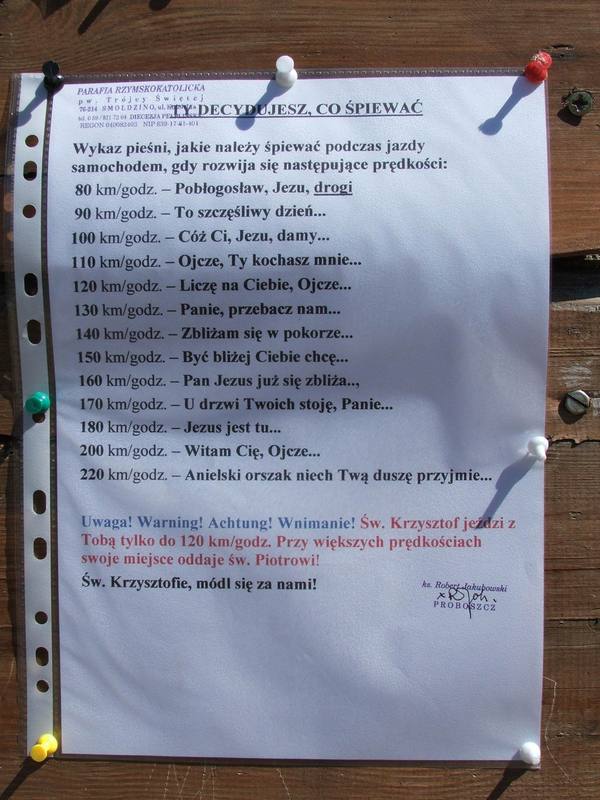 PARAFIA RZYMSKOKATOLICKA
pw. Trójcy Świętej
76-214 SMOŁDZINO, ul.
tel. 0 59 / 811 72 04 DIECEZJA
REGON 040082403 NIP 839-17-81-401
DECYDUJESZ, CO ŚPIEWAĆ
Wykaz pieśni, jakie należy śpiewać podczas jazdy
samochodem, gdy rozwija się następujące prędkości:
80 km/godz. – Pobłogosław, Jezu, drogi
90 km/godz. – To szczęśliwy dzień...
100 km/godz. – Cóż Ci, Jezu, damy...
110 km/godz. – Ojcze, Ty kochasz mnie...
120 km/godz. – Liczę na Ciebie, Ojcze...
130 km/godz. – Panie, przebacz nam...
140 km/godz. – Zbliżam się w pokorze...
150 km/godz. – Być bliżej Ciebie chcę...
160 km/godz. – Pan Jezus już się zbliża..,
170 km/godz. – U drzwi Twoich stoję, Panie...
180 km/godz. – Jezus jest tu...
200 km/godz. – Witam Cię, Ojcze...
220 km/godz. – Anielski orszak niech Twą duszę przyjmie...
Uwaga! Warning! Achtung! Wnimanie! Św. Krzysztof jeździ z
Tobą tylko do 120 km/godz. Przy większych prędkościach
swoje miejsce oddaje św. Piotrowi!
Św. Krzysztofie, módl się za nami!
ks. Robert Jakubowski
PROBOSZCZ